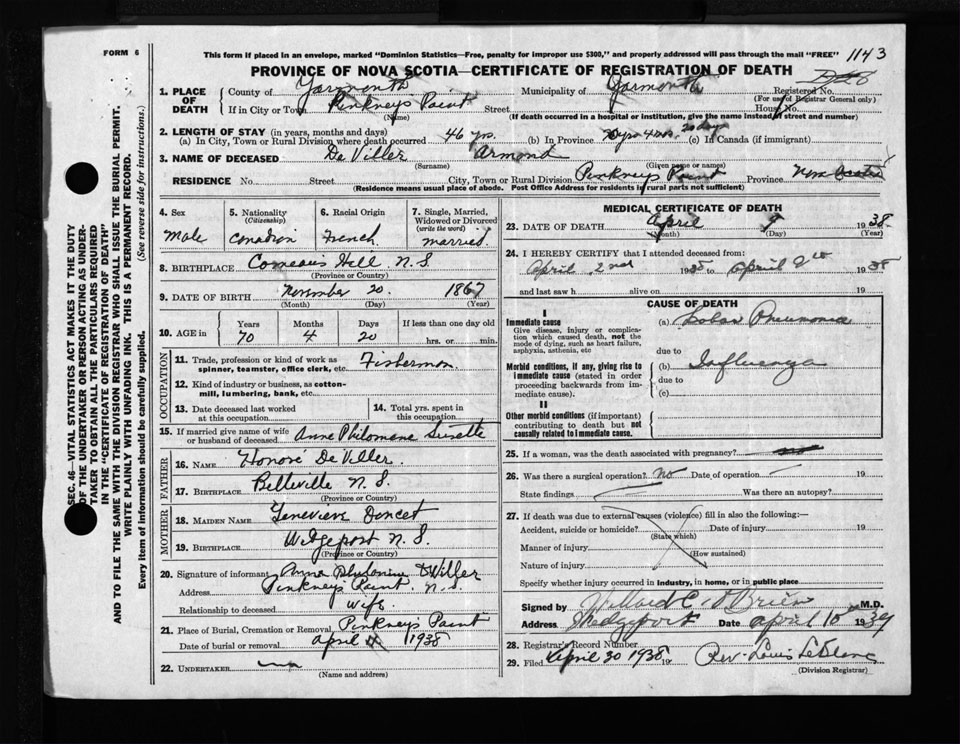 FORM 6
This form if placed in an envelope, marked "Dominion Statistics—Free, penalty for improper use $300," and properly addressed will pass through the mail "FREE"
1143
PROVINCE OF NOVA SCOTIA—CERTIFICATE OF REGISTRATION OF DEATH
1. PLACE OF DEATH County of Yarmouth Municipality of Yarmouth Registered No.
(For use of Registrar General only)
If in City or Town Pinkneys Point Street House No.
(Name) (If death occurred in a hospital or institution, give the name instead of street and number)
2. LENGTH OF STAY (in years, months and days)
(a) In City, Town or Rural Division where death occurred 46 yrs. (b) In Province 70 yrs 4 mo. 20 days (c) In Canada (if immigrant)
3. NAME OF DECEASED De Viller Armond
(Surname) (Given name or names)
RESIDENCE No. Street City, Town or Rural Division Pinkneys Point Province Nova Scotia
(Residence means usual place of abode. Post Office Address for residents in rural parts not sufficient)
4. Sex Male
5. Nationality (Citizenship) Canadian
6. Racial Origin French
7. Single, Married, Widowed or Divorced (write the word) married.
8. BIRTHPLACE Comeaus Hill N.S.
(Province or Country)
9. DATE OF BIRTH November 20. 1867
(Month) (Day) (Year)
10. AGE in Years Months Days If less than one day
70 4 20 hrs. or min.
OCCUPATION
11. Trade, profession or kind of work as spinner, teamster, office clerk, etc. Fisherman
12. Kind of industry or business, as cotton-mill, lumbering, bank, etc.
13. Date deceased last worked at this occupation
14. Total yrs. spent in this occupation
15. If married give name of wife or husband of deceased Anne Philomene Surette
FATHER
16. NAME Honoré De Viller.
17. BIRTHPLACE Belleville N.S.
(Province or Country)
MOTHER
18. MAIDEN NAME Genevieve Doucet
19. BIRTHPLACE Wedgeport N.S.
(Province or Country)
20. Signature of informant Anna D Viller
Address Pinkneys Point. N.S.
Relationship to deceased wife.
21. Place of Burial, Cremation or Removal Pinkneys Point
Date of burial or removal April 1938
22. UNDERTAKER
(Name and address)
MEDICAL CERTIFICATE OF DEATH
23. DATE OF DEATH April 9 1938.
(Month) (Day) (Year)
24. I HEREBY CERTIFY that I attended deceased from:
April 2nd 1938 to April 9th 1938
and last saw h alive on 19
CAUSE OF DEATH
I
Immediate cause
Give disease, injury or complication which caused death, not the mode of dying, such as heart failure, asphyxia, asthenia, etc
(a) Lobar Pneumonia
due to
Morbid conditions, if any, giving rise to immediate cause (stated in order proceeding backwards from immediate cause).
(b) Influenza
due to
(c)
II
Other morbid conditions (if important) contributing to death but not causally related to immediate cause.
25. If a woman, was the death associated with pregnancy? no
26. Was there a surgical operation? no Date of operation 19
State findings Was there an autopsy?
27. If death was due to external causes (violence) fill in also the following:—
Accident, suicide or homicide? Date of injury 19
(State which)
Manner of injury
(How sustained)
Nature of injury
Specify whether injury occurred in industry, in home, or in public place
Signed by Willard C. O'Brien M.D.
Address Wedgeport Date April 10 1939
28. Registrar's Record Number
29. Filed April 30 1938 19 Rev. Louis LeBlanc
(Division Registrar)
SEC. 46—VITAL STATISTICS ACT MAKES IT THE DUTY
OF THE UNDERTAKER OR PERSON ACTING AS UNDER-
TAKER TO OBTAIN ALL THE PARTICULARS REQUIRED
IN THE "CERTIFICATE OF REGISTRATION OF DEATH"
AND TO FILE THE SAME WITH THE DIVISION REGISTRAR WHO SHALL ISSUE THE BURIAL PERMIT.
WRITE PLAINLY WITH UNFADING INK. THIS IS A PERMANENT RECORD.
Every item of information should be carefully supplied. (See reverse side for instructions.)